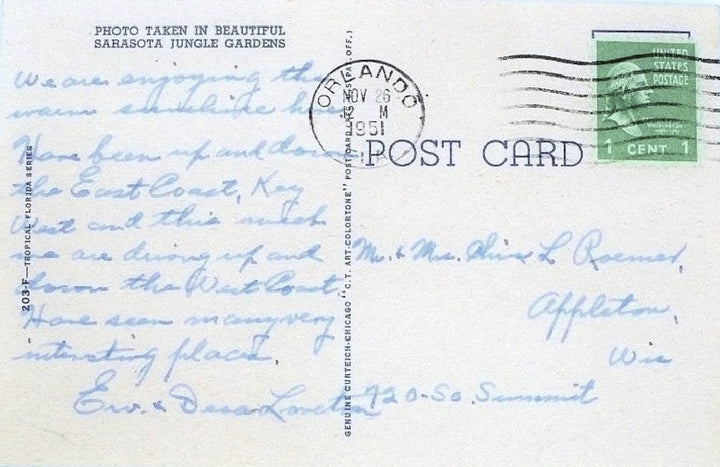 PHOTO TAKEN IN BEAUTIFUL
SARASOTA JUNGLE GARDENS
We are enjoying the
warm sunshine here
Have been up and down
the East Coast, Key
West and this week
we are driving up and
down the West Coast.
Have seen many very
interesting places.
Erv. &
203-F—TROPICAL FLORIDA SERIES
GENUINE CURTEICH-CHICAGO "C.T. ART-COLORTONE" POST CARD (REG. U.S. PAT. OFF.)
ORLANDO
NOV 26
M
1951
UNITED
STATES
POSTAGE
WASHINGTON
1 CENT 1
POST CARD
Mr. & Mrs. L. Roemer,
Appleton,
Wis
920-So. Summit